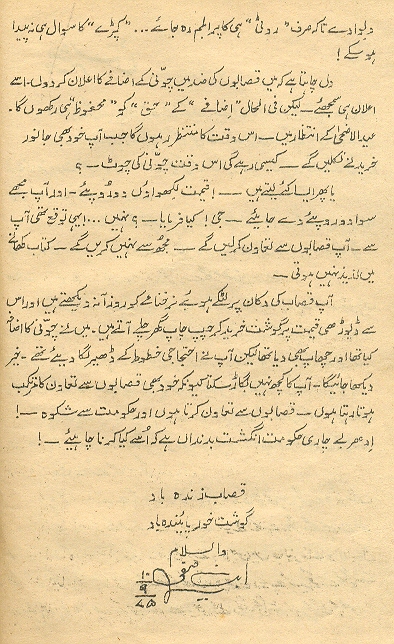 دلوا دے تاکہ صرف "روٹی" ہی کا پرابلم رہ جائے ... "کپڑے" کا سوال ہی نہ پیدا
ہو سکے!
دل چاہتا ہے کہ میں قصابوں کی ضد میں چونّی کے اضافے کا اعلان کر دوں۔ اسے
اعلان ہی سمجھئے۔ لیکن فی الحال "اضافے" کے "حق" کو "محفوظ" ہی رکھوں گا۔
عید الاضحیٰ کے انتظار میں۔ اس وقت کا منتظر رہوں گا جب آپ خود بھی جانور
خریدنے نکلیں گے۔ کیسی رہے گی اس وقت چونّی کی چوٹ۔ ؟
یا پھر ایسا کئے لیتے ہیں۔ قیمت لکھوا دوں دو روپئے۔ اور آپ مجھے
سوا دو روپئے دے جایئے۔ جی! کیا فرمایا۔ ؟ نہیں ... ایسی توقع تھی آپ
سے۔ آپ قصابوں سے تعاون کر لیں گے۔ مجھ سے نہیں کریں گے۔ کتاب کھانے
میں لذیذ نہیں ہوتی۔
آپ قصاب کی دکان پر لٹکے ہوئے نرخنامے کو روز آنہ دیکھتے ہیں اور اس
سے ڈیوڑھی قیمت پر گوشت خرید کر چپ چاپ گھر چلے آتے ہیں۔ میں نے چونّی کا اضافہ
کیا تھا اور چھاپ بھی دیا تھا لیکن آپ نے احتجاجی خطوط کے ڈھیر لگا دیئے تھے۔ خیر
دیکھا جائیگا۔ آپ کا کچھ نہیں بگاڑ سکتا کیونکہ خود بھی قصابوں سے تعاون کا مرتکب
ہوتا رہتا ہوں۔ قصابوں سے تعاون کرتا ہوں اور حکومت سے شکوہ۔!
اِدھر بے چاری حکومت انگشت بدنداں ہے کہ اُسے کیا کرنا چاہیئے۔!
قصاب زندہ باد
گوشت خور پائندہ باد
والسلام
ابن صفی
۱۰
۹
۷۵